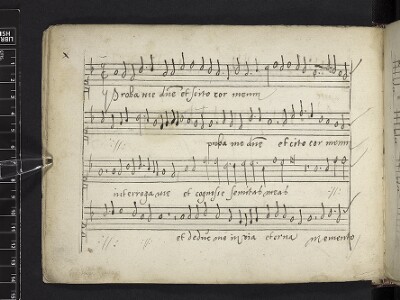 Proba me dñe et scito cor meum
proba me dñe et scito cor meum
interroga me et cognosce semitas meas :||:
:||: :||: et deduc me in via eterna Memento